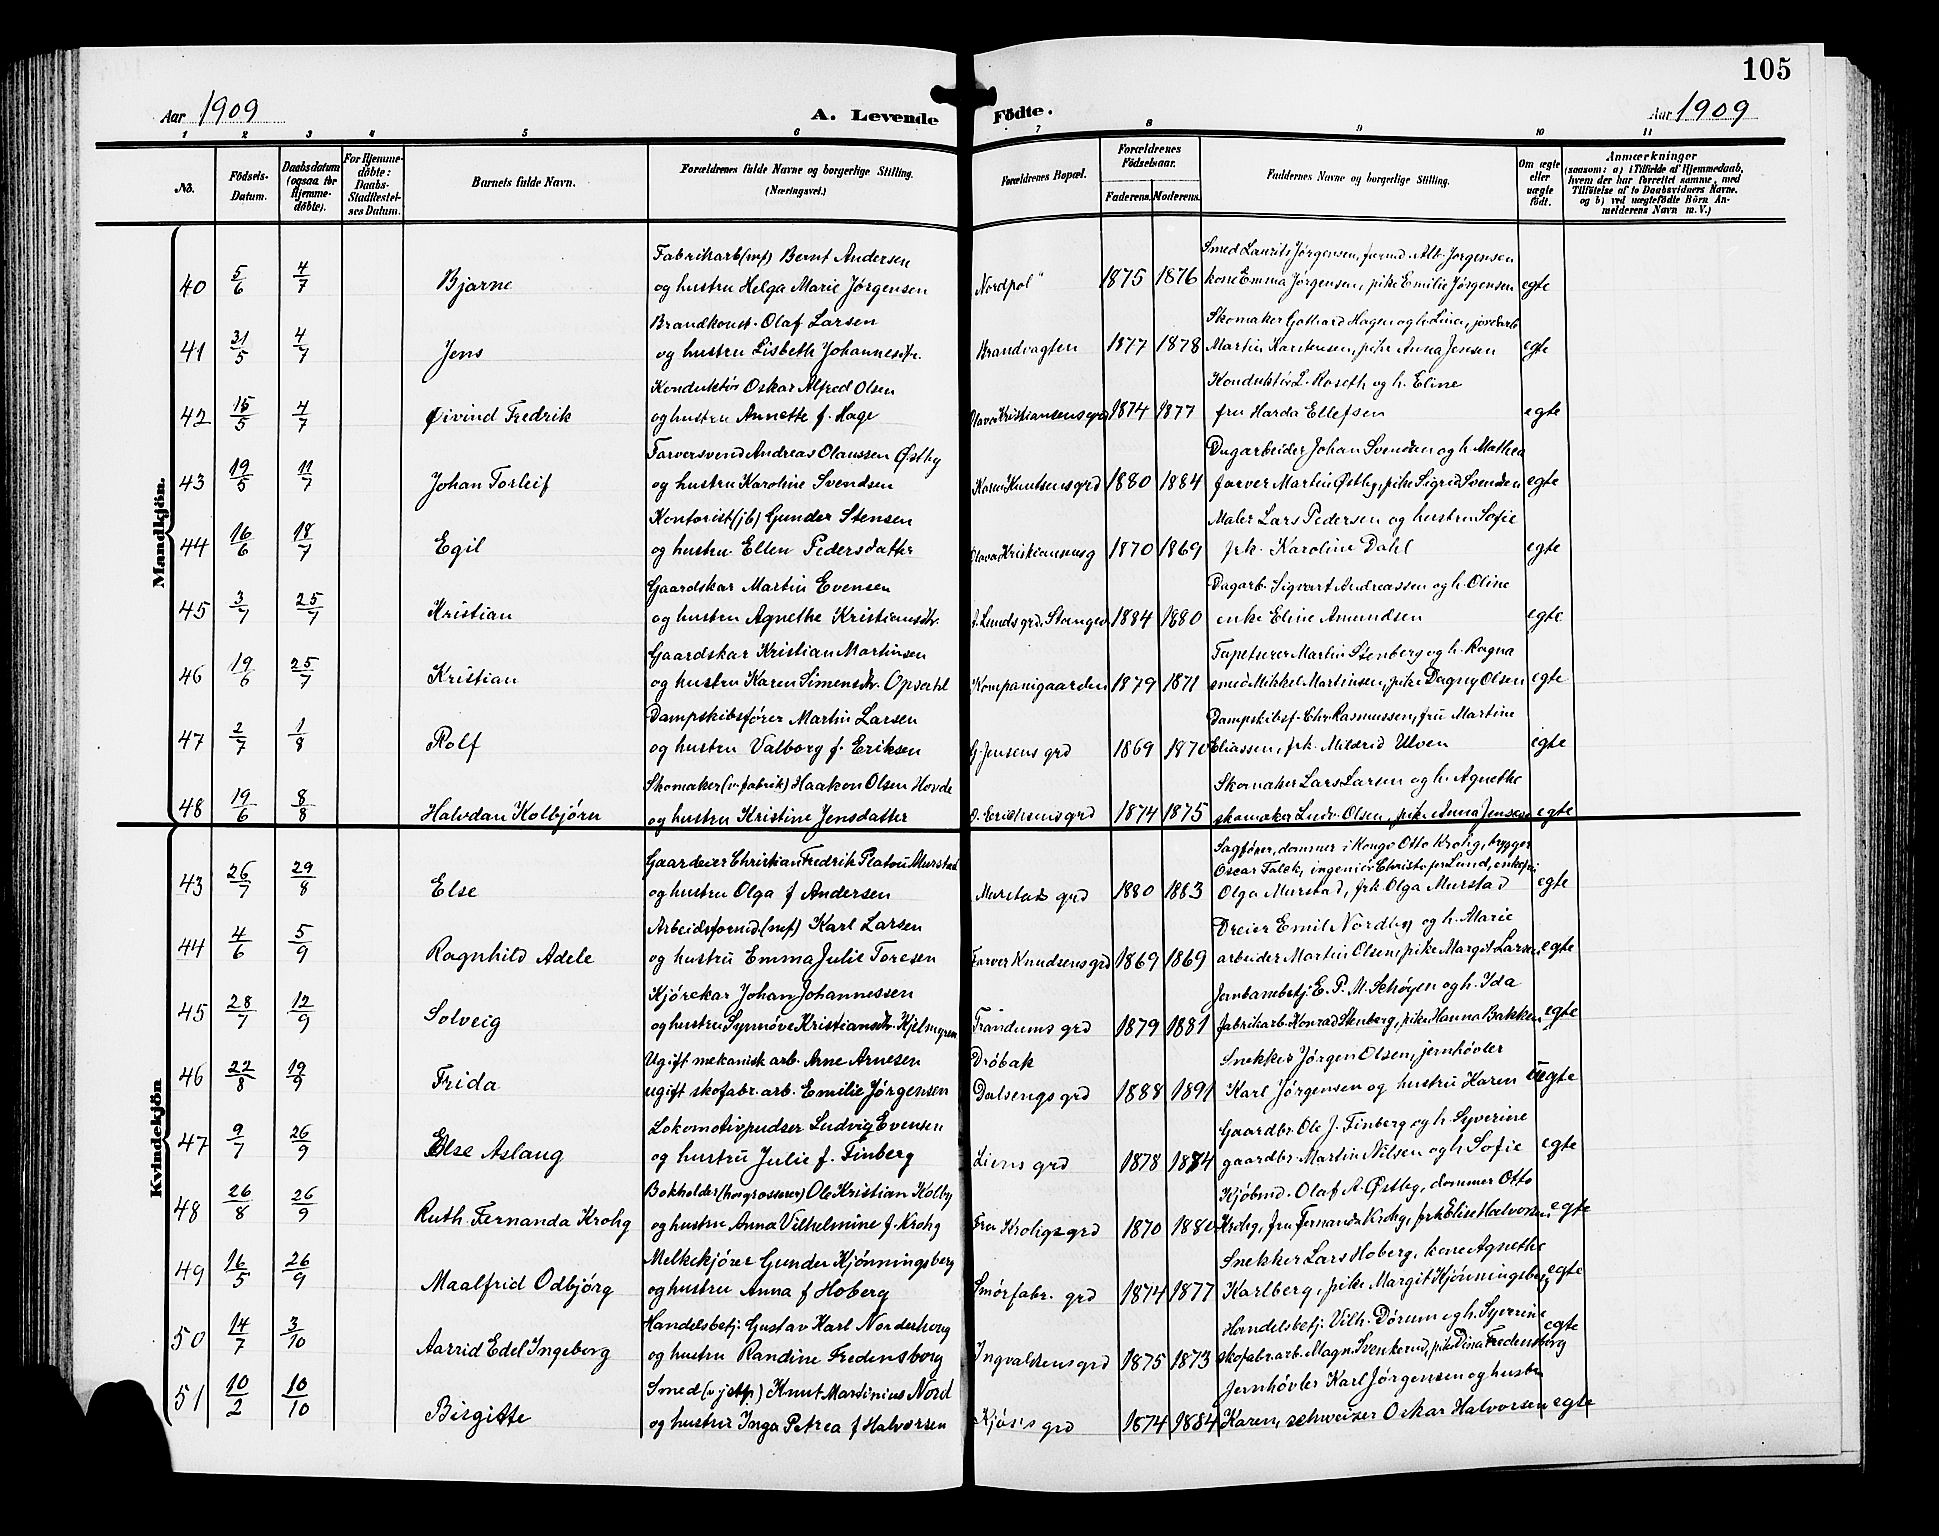 105
Aar 1909 A. Levende Födte. Aar 1909
1 2 3 4 5 6 7 8 9 10 11
No. Födsels-Datum. Daabsdatum (ogsaa for Hjemmedöbte). For Hjemmedöbte: Daabs-Stadfestelses Datum. Barnets fulde Navn. Forældrenes fulde Navne og borgerlige Stilling. (Næringsvei.) Forældrenes Bopæl. Forældrenes Födselsaar. Faderens. Moderens. Faddernes Navne og borgerlige Stilling. Om ægte eller uægte födt. Anmærkninger (saasom: a) i Tilfælde af Hjemmedaab, hvem der har forrettet samme, med Tilföielse af to Daabsvidners Navne. og b) ved uægtefödte Börn Anmelderens Navn m. V.)
Mandkjön.
Fabrikarb (mf) Bernt Andersen Smed Laurits Jørgensen, formd Alb. Jørgensen
40 5/6 4/7 Bjarne og hustru Helga Marie Jørgensen "Nordpol" 1875 1876 kone Emma Jørgensen, pike Emilie Jørgensen egte
Brandkonst. Olaf Larsen Skomaker Gothard Hagen og h. Lina, jordarb
41 31/5 4/7 Jens og hustru Lisbeth Johannesdtr. Brandvagten 1877 1878 Martin Karstensen, pike Anna Jensen egte
Konduktör Oskar Alfred Olsen Konduktör L. Roseth og h. Eline
42 15/5 4/7 Øivind Fredrik og hustru Annette f. Hage Olava Kristiansens grd 1874 1877 fru Harda Ellefsen egte
Farversvend Andreas Olaussen Østby Dagarbeider Johan Svendsen og h. Mathea
43 19/5 11/7 Johan Torleif og hustru Karoline Svendsen Karen Knutsens grd 1880 1884 farver Martin Østby, pike Sigrid Svendsen egte
Kontorist (jb) Gunder Stensen Maler Lars Pedersen og hustru Sofie
44 16/6 18/7 Egil og hustru Ellen Pedersdatter Olava Kristiansens g 1870 1869 frk. Karoline Dahl egte
Gaardskar Martin Evensen Dagarb. Sigvart Andreassen og h. Oline
45 3/7 25/7 Kristian og hustru Agnethe Kristiansdtr. A. Lunds grd. Stangev 1884 1880 enke Eline Amundsen egte
Gaardskar Kristian Martinsen Tapetserer Martin Stenberg og h. Ragna
46 19/6 25/7 Kristian og hustru Karen Simensdtr. Opsahl Kompanigaarden 1879 1871 smed Mikkel Martinsen, pike Dagny Olsen egte
Dampskibsfører Martin Larsen Dampskibsf. Chr. Rasmussen, fru Martine
47 2/7 1/8 Rolf og hustru Valborg f. Eriksen G. Jensens grd 1869 1870 Eliassen, frk. Mildrid Ulven egte
Skomaker (v. fabrik) Haakon Olsen Hovde Skomaker Lars Larsen og h. Agnethe
48 19/6 8/8 Halvdan Kolbjörn og hustru Kristine Jensdatter O. Erichsens grd 1874 1875 skomaker Ludv. Olsen, pike Anna Jensen egte
Kvindekjön
Sagfører, dommer i Kongo Otto Krohg, brygger
Gaardeier Christian Fredrik Platou Murstad Oscar Falck, ingeniör Christofer Lund, enkefru
43 26/7 29/8 Else og hustru Olga f Andersen Murstads grd 1880 1883 Olga Murstad, frk. Olga Murstad egte
Arbeidsformd (mf) Karl Larsen Dreier Emil Nordby og h. Marie
44 4/6 5/9 Ragnhild Adele og hustru Emma Julie Toresen Farver Knudsens grd 1869 1869 arbeider Martin Olsen, pike Margit Larsen egte
Kjörekar Johan Johannessen Jernbanebetj. E. P. M. Schøyen og h. Ida
45 28/7 12/9 Solveig og hustru Synnöve Kristiansdtr. Hjelmgren Trandums grd 1879 1881 fabrikarb. Konrad Stenberg, pike Hanna Bakken egte
Ugift mekanisk arb. Arne Arnesen Dröbak Snekker Jörgen Olsen, jernhøvler
46 22/8 19/9 Frida ugift skofabr. arb. Emilie Jørgensen Dalsengs grd 1888 1891 Karl Jørgensen og hustru Karen uegte
Lokomotivpudser Ludvig Evensen Gaardbr. Ole J. Finberg og h. Syverine
47 9/7 26/9 Else Aslaug og hustru Julie f. Finberg Liens grd 1878 1884 gaardbr. Martin Nilsen og h Sofie egte
Bokholder (hos grosserer) Ole Kristian Kolby Kjöbmd. Olaf A. Østby, dommer Otto
48 26/8 26/9 Ruth Fernanda Krohg og hustru Anna Vilhelmine f. Krohg Fru Krohgs grd 1870 1880 Krohg, fru Fernanda Krohg, frk Elise Halvorsen egte
Melkekjörer Gunder Kjönningsberg Snekker Lars Hoberg, kone Agnethe
49 16/5 26/9 Maalfrid Odbjörg og hustru Anna f Hoberg Smörfabr. grd 1874 1877 Karlberg, pike Margit Kjönningsberg egte
Handelsbetj. Gustav Karl Norderhaug Handelsbetj. Vilh. Dörum og h. Syverine
50 14/7 3/10 Aasrid Edel Ingeborg og hustru Randine Fredensborg Ingvaldsens grd 1875 1873 skofabr. arb. Magn. Svenkerud, pike Dina Fredensborg egte
Smed (v jstp.) Knut Martinius Nord Jernhövler Karl Jørgensen og hustru
51 10/2 10/10 Birgitte og hustru Inga Petrea f Halvorsen Kjös's grd 1874 1884 Karen, schweizer Oskar Halvorsen egte